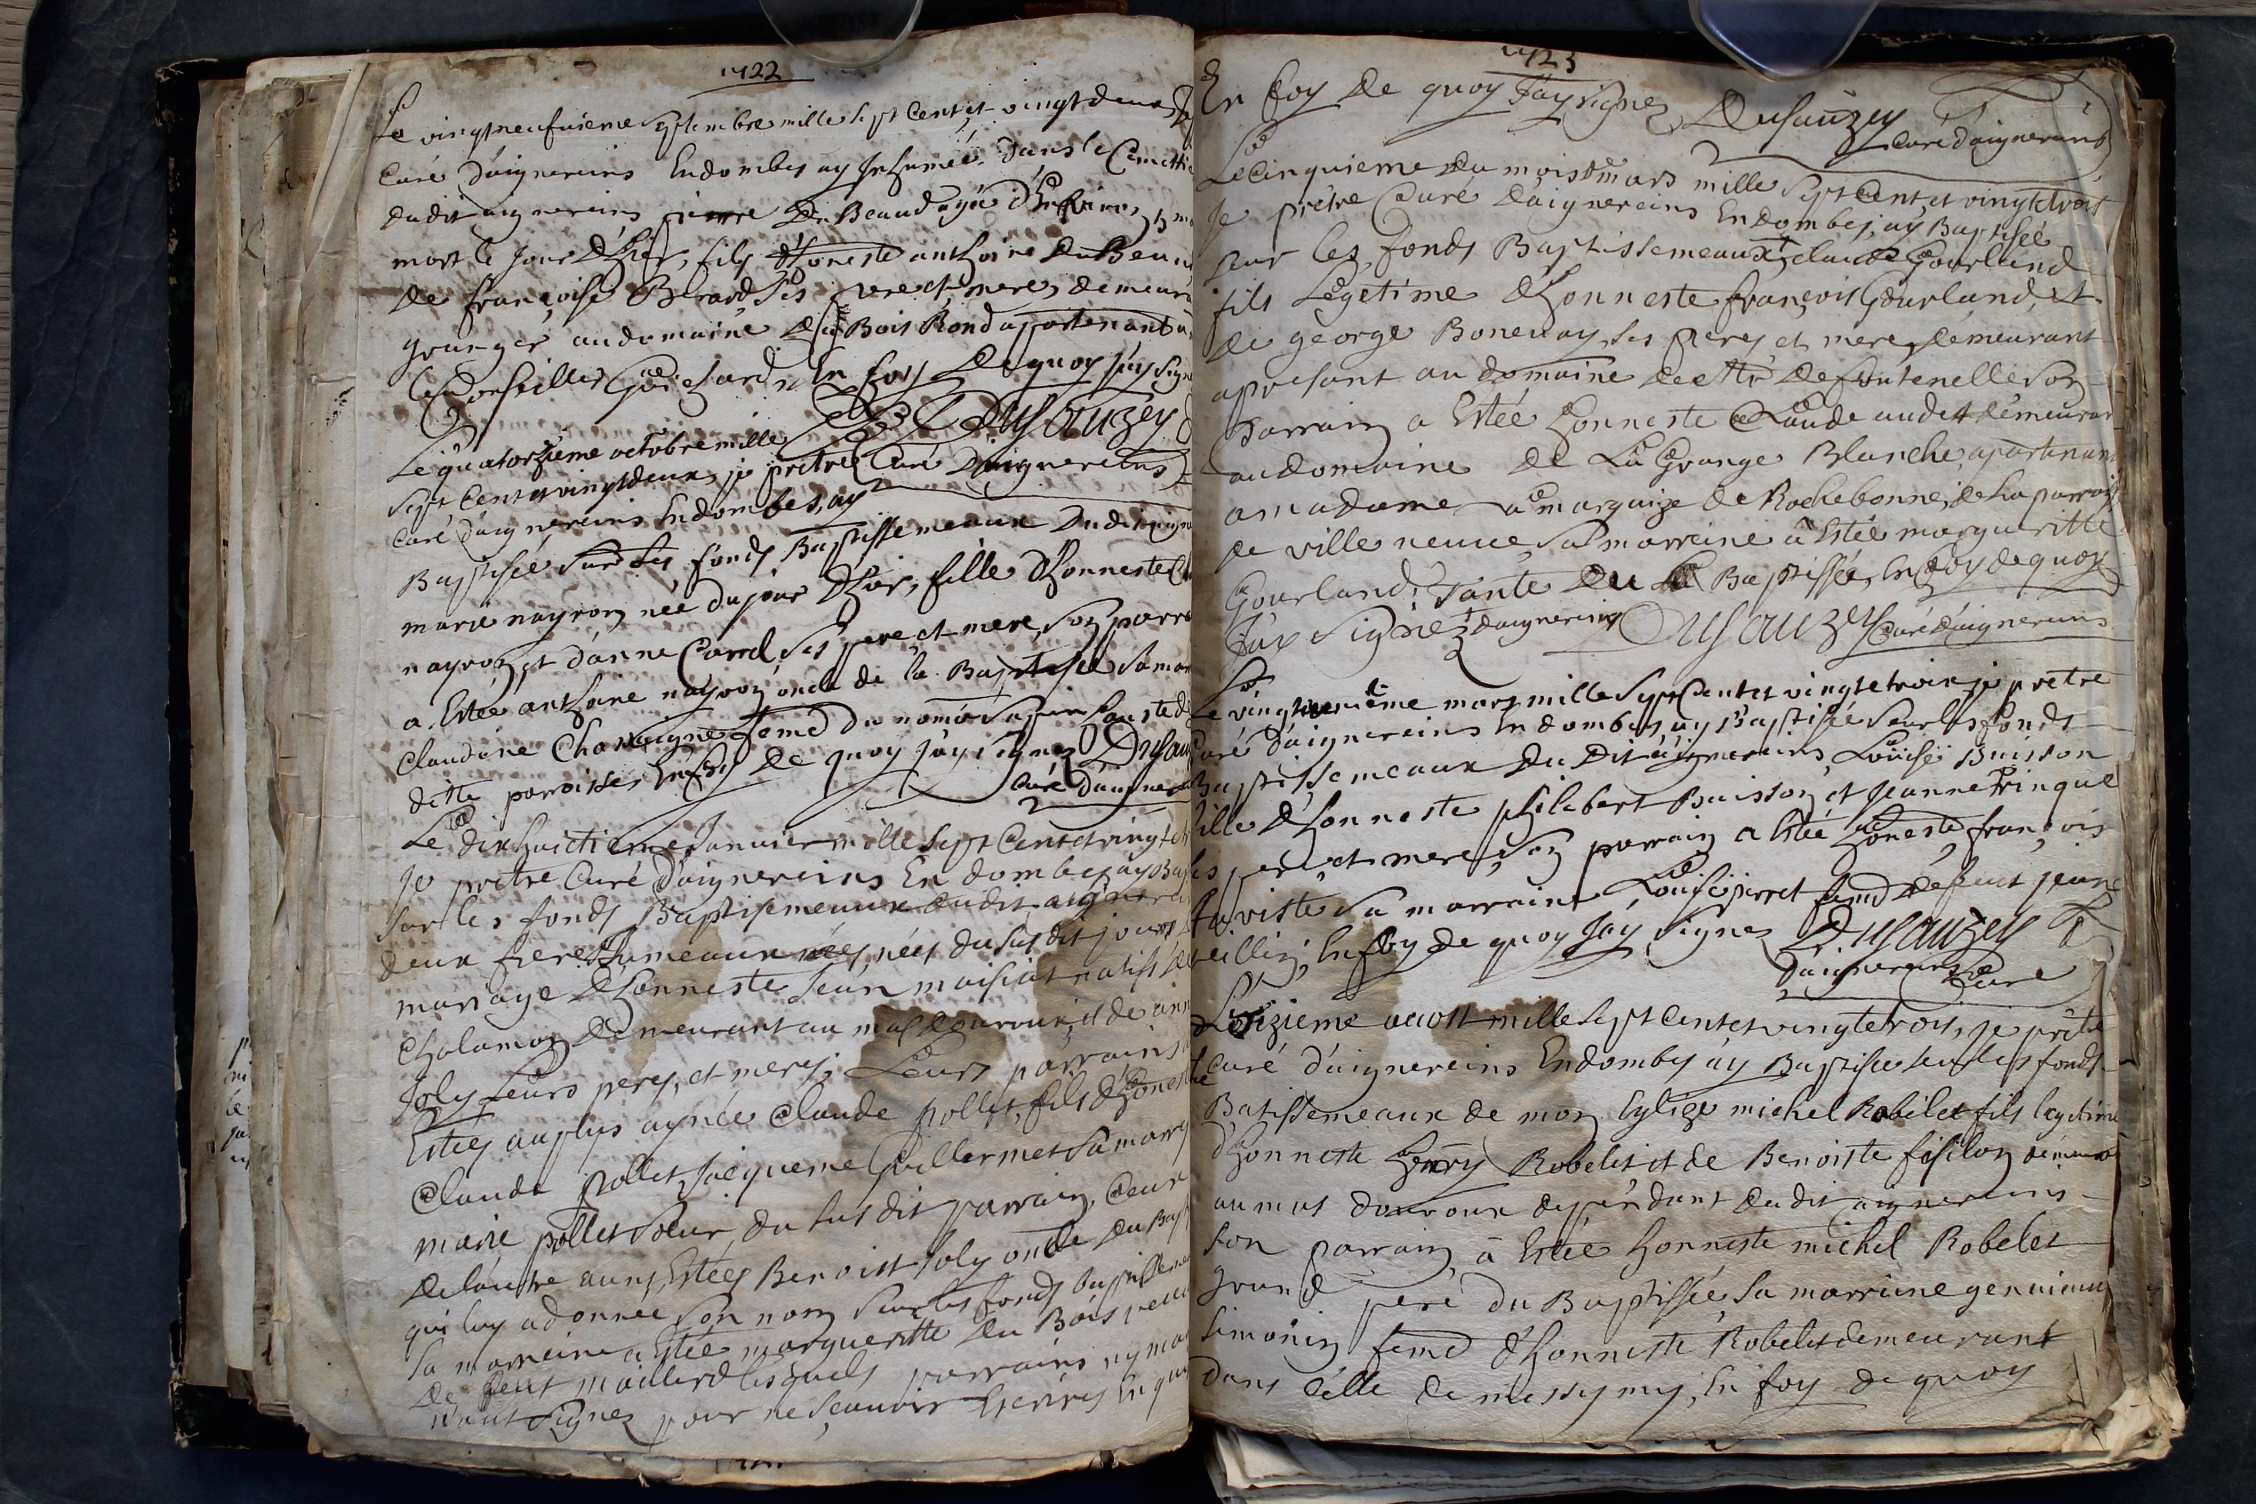 1722
Le vingtneufuieme septembre mille sept Cent et vingt deux Je
Curé d'aignereins En dombes ay Inhumée dans le Cimettie
dudit aignereins pierre Du Beaud ágé d'Enfiron 5 mo
mort le Jour d'hier, fils d'honeste anthoine Du Beau
de françoise Berard, ses pere et mere, demeura
granger au domaine du Bois Rond appartenant a
Conseiller En foy de quoy j'ay signe
Dusauzey
Curé daignereins
Le quatorzieme octobre mille
sept Cent et vingt deux, je pretre
Curé d'aignereins En dombes, ay
Baptisée sur les fonds Baptissemeaux dudit aigne
marie nayron née du jour d'hier, fille d'honneste Cl
nayron et d'anne Carrel, ses pere et mere, son parra
a Estée anthoine nayron oncle de la Baptisée sa mar
claudine femé du nomé
ditte parroisse, En foy de quoy j'ay signez Dusau
Curé d'aignerei
Le dix huictieme Januier mille sept Cent et vingt
je pretre Curé d'aignereins En dombes ay Ba
sur les fonds Baptisemeaux dudit aignere
deux freres Jumeaux nées, nées du susdit jour
mariage d'honneste Jean moisiat natiff de
Chalamon demeurant au mas d'ouroux, et de ann
Joly leurs peres, et meres, Leurs parrains
Estées au plus aynée Claude pollet, fils d'hones
Claude pollet, Jacqueme Guillermet sa marr
marie pollet seur du sus dit parrain, Ceux
de l'autre aunt, Estées Benoist Joly oncle du Bap
qui luy a donnée son nom sur les fonds baptisseme
sa marreine a Estée margueritte Du Bois veu
de feut maillard lesquels parrains ny mar
n'aunt signez pour ne scauoir Escrires En quo
1723
En foy de quoy J'ay signez Dusauzey
Curé d'aignereins
Le Cinquieme du mois de mars mille sept Cent, et vingt trois
Je prétre Curé d'aignereins En dombes, ay Baptisée
sur les fonds Baptissemeaux, claude Gourland
fils Legetime d'honneste françois Gourland, et
de george Bonenay, ses peres et mere, demeurant
apresant au domaine de Mr de fontenelle son
parrain a Estée honneste Claude audet demeurar
au domaine de La Grange Blanche, apartenan
a madame la marquize de Rochebonne, de la parroiss
de ville neuue, sa marreine a Estée margueritte
Gourland, Tante du Baptissée, En foy de quoy
J'ay signez d'aignereins Dusauzey Curé d'aignereins
Le vingt uenieme mars mille sept Cent et vingt et troix je prètre
Curé d'aignereins En dombes, ay Baptisée sur les fonds
Baptissemeaux du Dit aignereins, Loüise Buisson
fille d'honneste philibert Buisson, et Jeanne Trinque
ses pere, et mere, son parrain a Estée honeste, françois
sa marraine Loüise perret femé de feut jean
En foy de quoy J'ay signez Dusauzey
D'aignereins Curé
Le sizieme auost mille sept Cent et vingt trois, je prêtre
Curé d'aignereins En dombes ay Baptisée sur les fonds
Batissemeaux de mon Eglize michel Robelet fils legetime
d'honneste henry Robelet et de Benoiste fisilon demeurā
au mas douroux dependant dudit aignereins
son parrain, a Estée honneste michel Robelet
grand pere du Baptissée, sa marraine
simonin femé d'honneste Robelet demeurant
dans celle de messymy, En foy de quoy